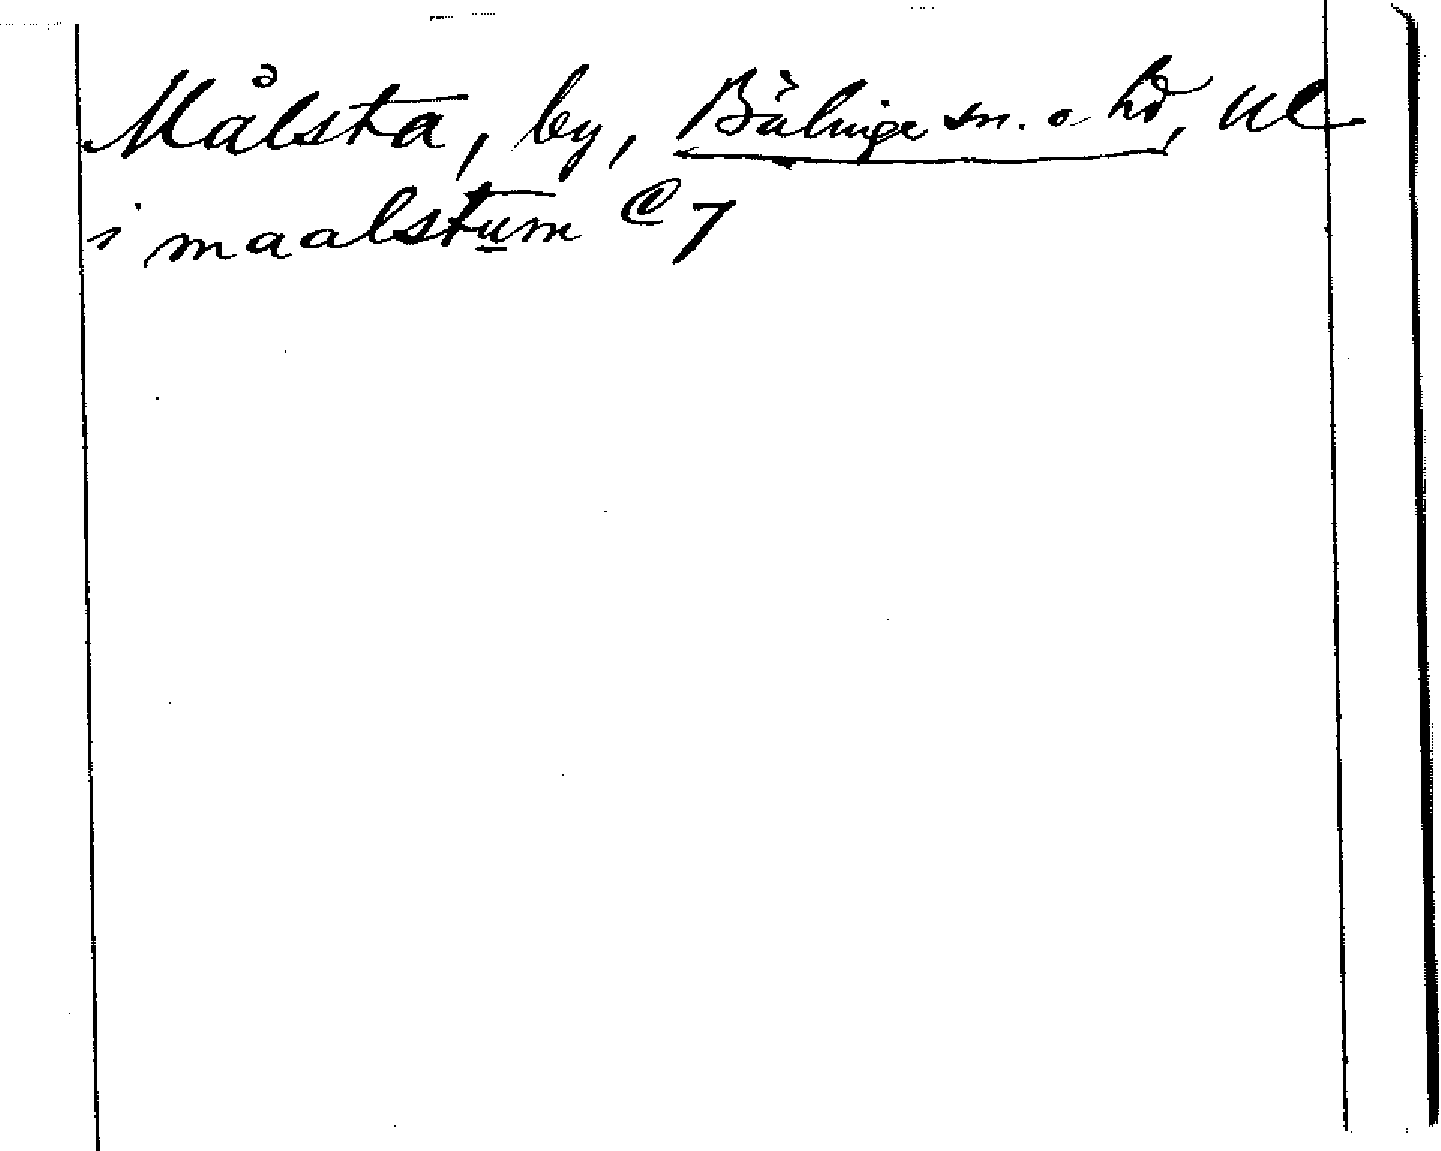 Målsta, by, Bälinge sn. o hd, Ul
i maalstum C 7